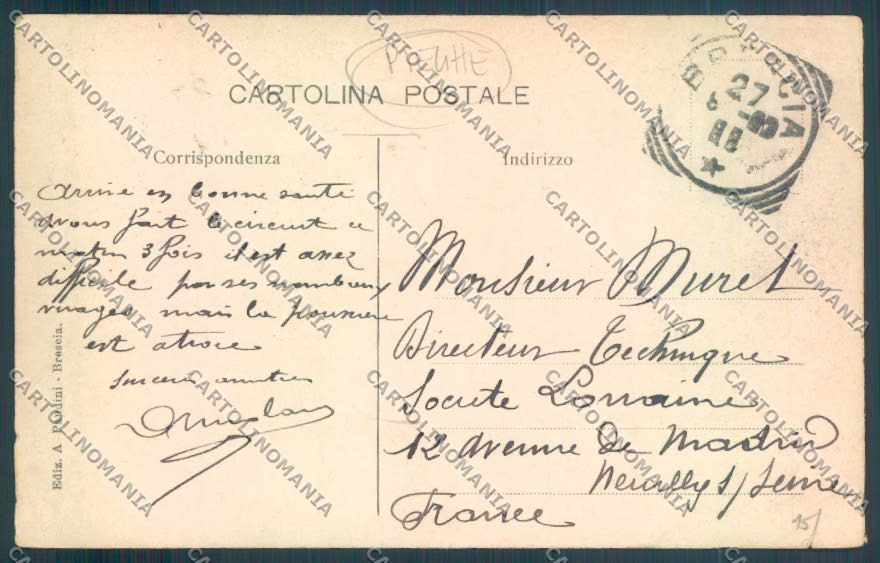 CARTOLINOMANIA
CARTOLINA POSTALE
Corrispondenza
Arrivé en bonne santé
avons fait le circuit ce
matin 3 fois il est assez
difficile par ses nombeux
virages mais la poussiere
est atroce
sinceres amities
Indirizzo
BRESCIA
27
Monsieur Muret
Directeur Technique
Societe Lorraine
12 Avenue de Madrid
Neuilly s/ Seine
France
15/
Ediz. A. Pandini - Brescia.